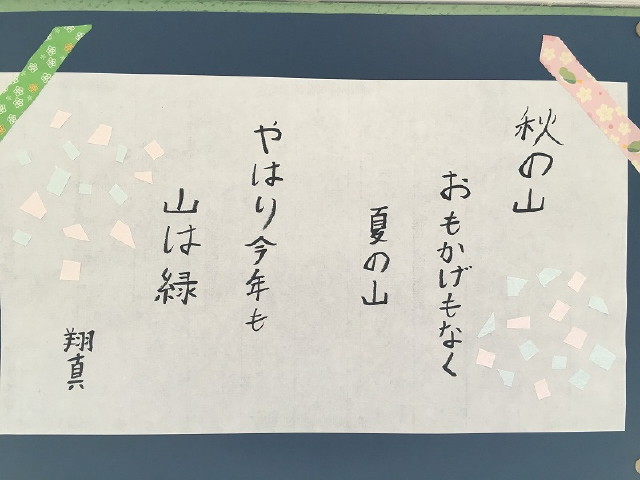 秋の山
おもかげもなく
夏の山
やはり今年も
山は緑
翔真